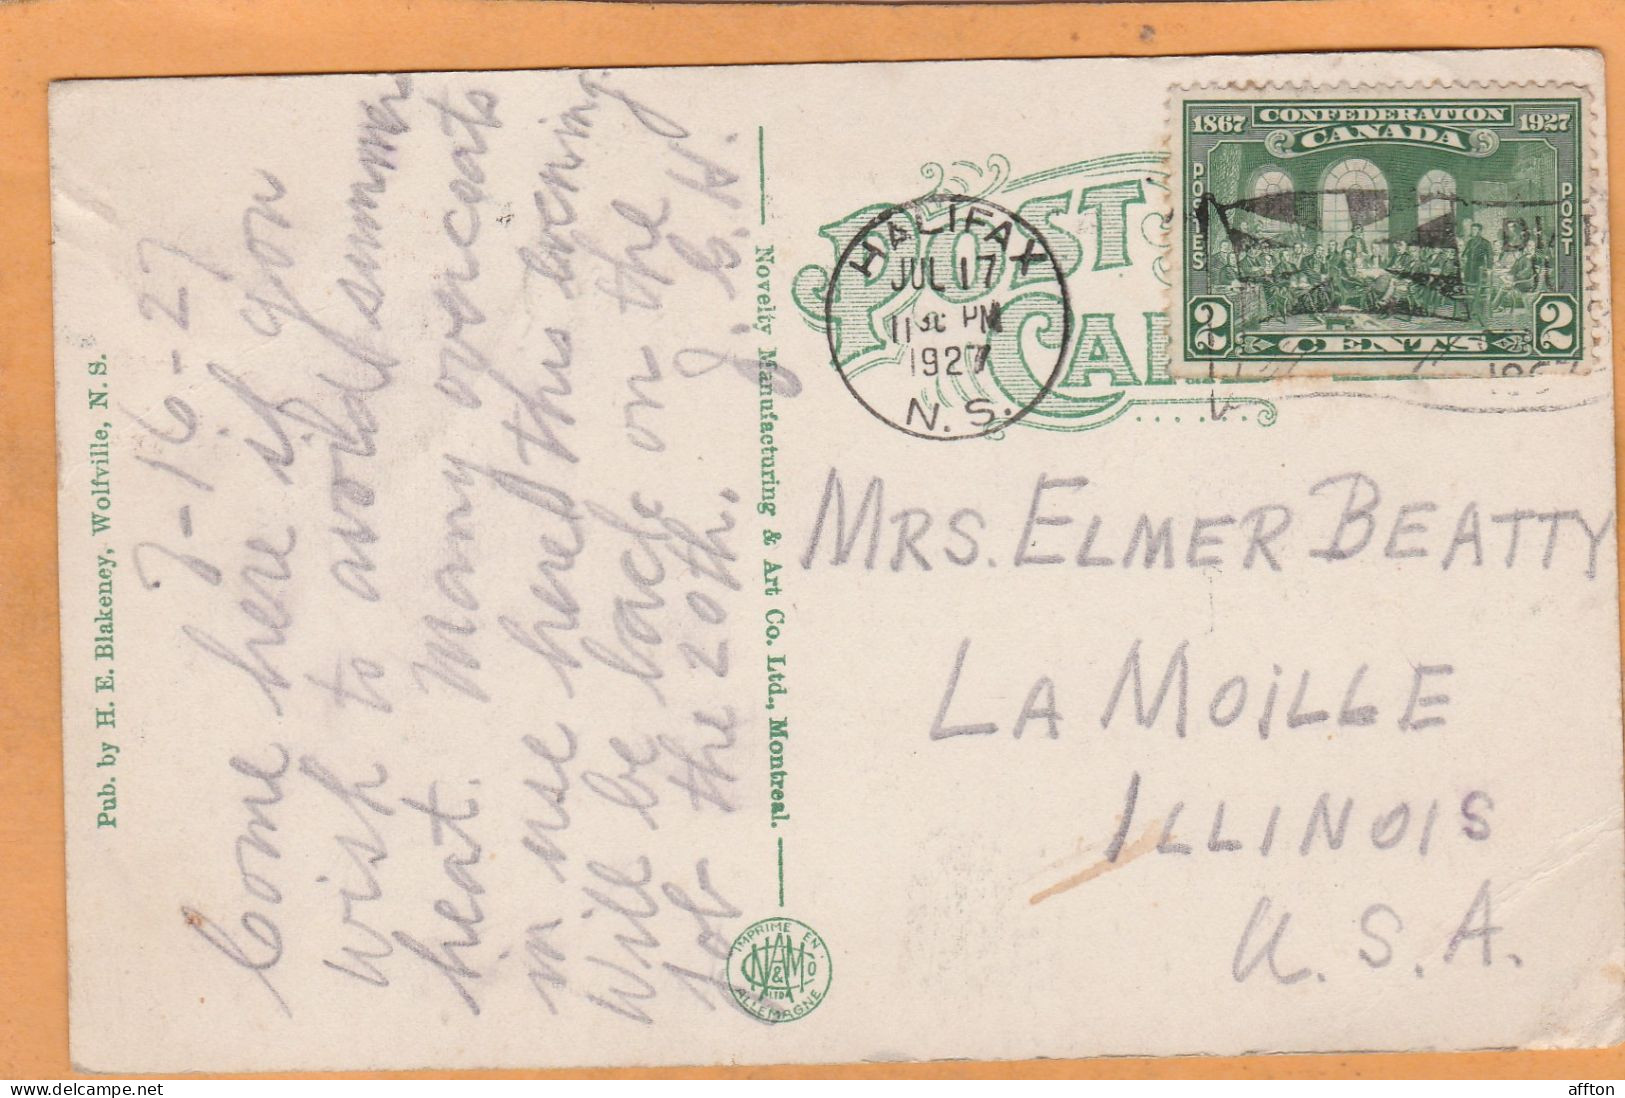 7-16-27
Come here if you
wish to avoid summer
heat. Many overcoats
in use here this evening.
Will be back on the
job the 20th. J. C. H.
Pub. by H. E. Blakeney, Wolfville, N. S.
Novelty Manufacturing & Art Co. Ltd., Montreal.
IMPRIME EN
ALLEMAGNE
LTD
POST
CAR
HALIFAX
JUL 17
11 30 PM
1927
N. S.
CONFEDERATION
1867 CANADA 1927
POSTES POST
2 CENTS 2
MRS. ELMER BEATTY
LA MOILLE
ILLINOIS
U. S. A.
affton